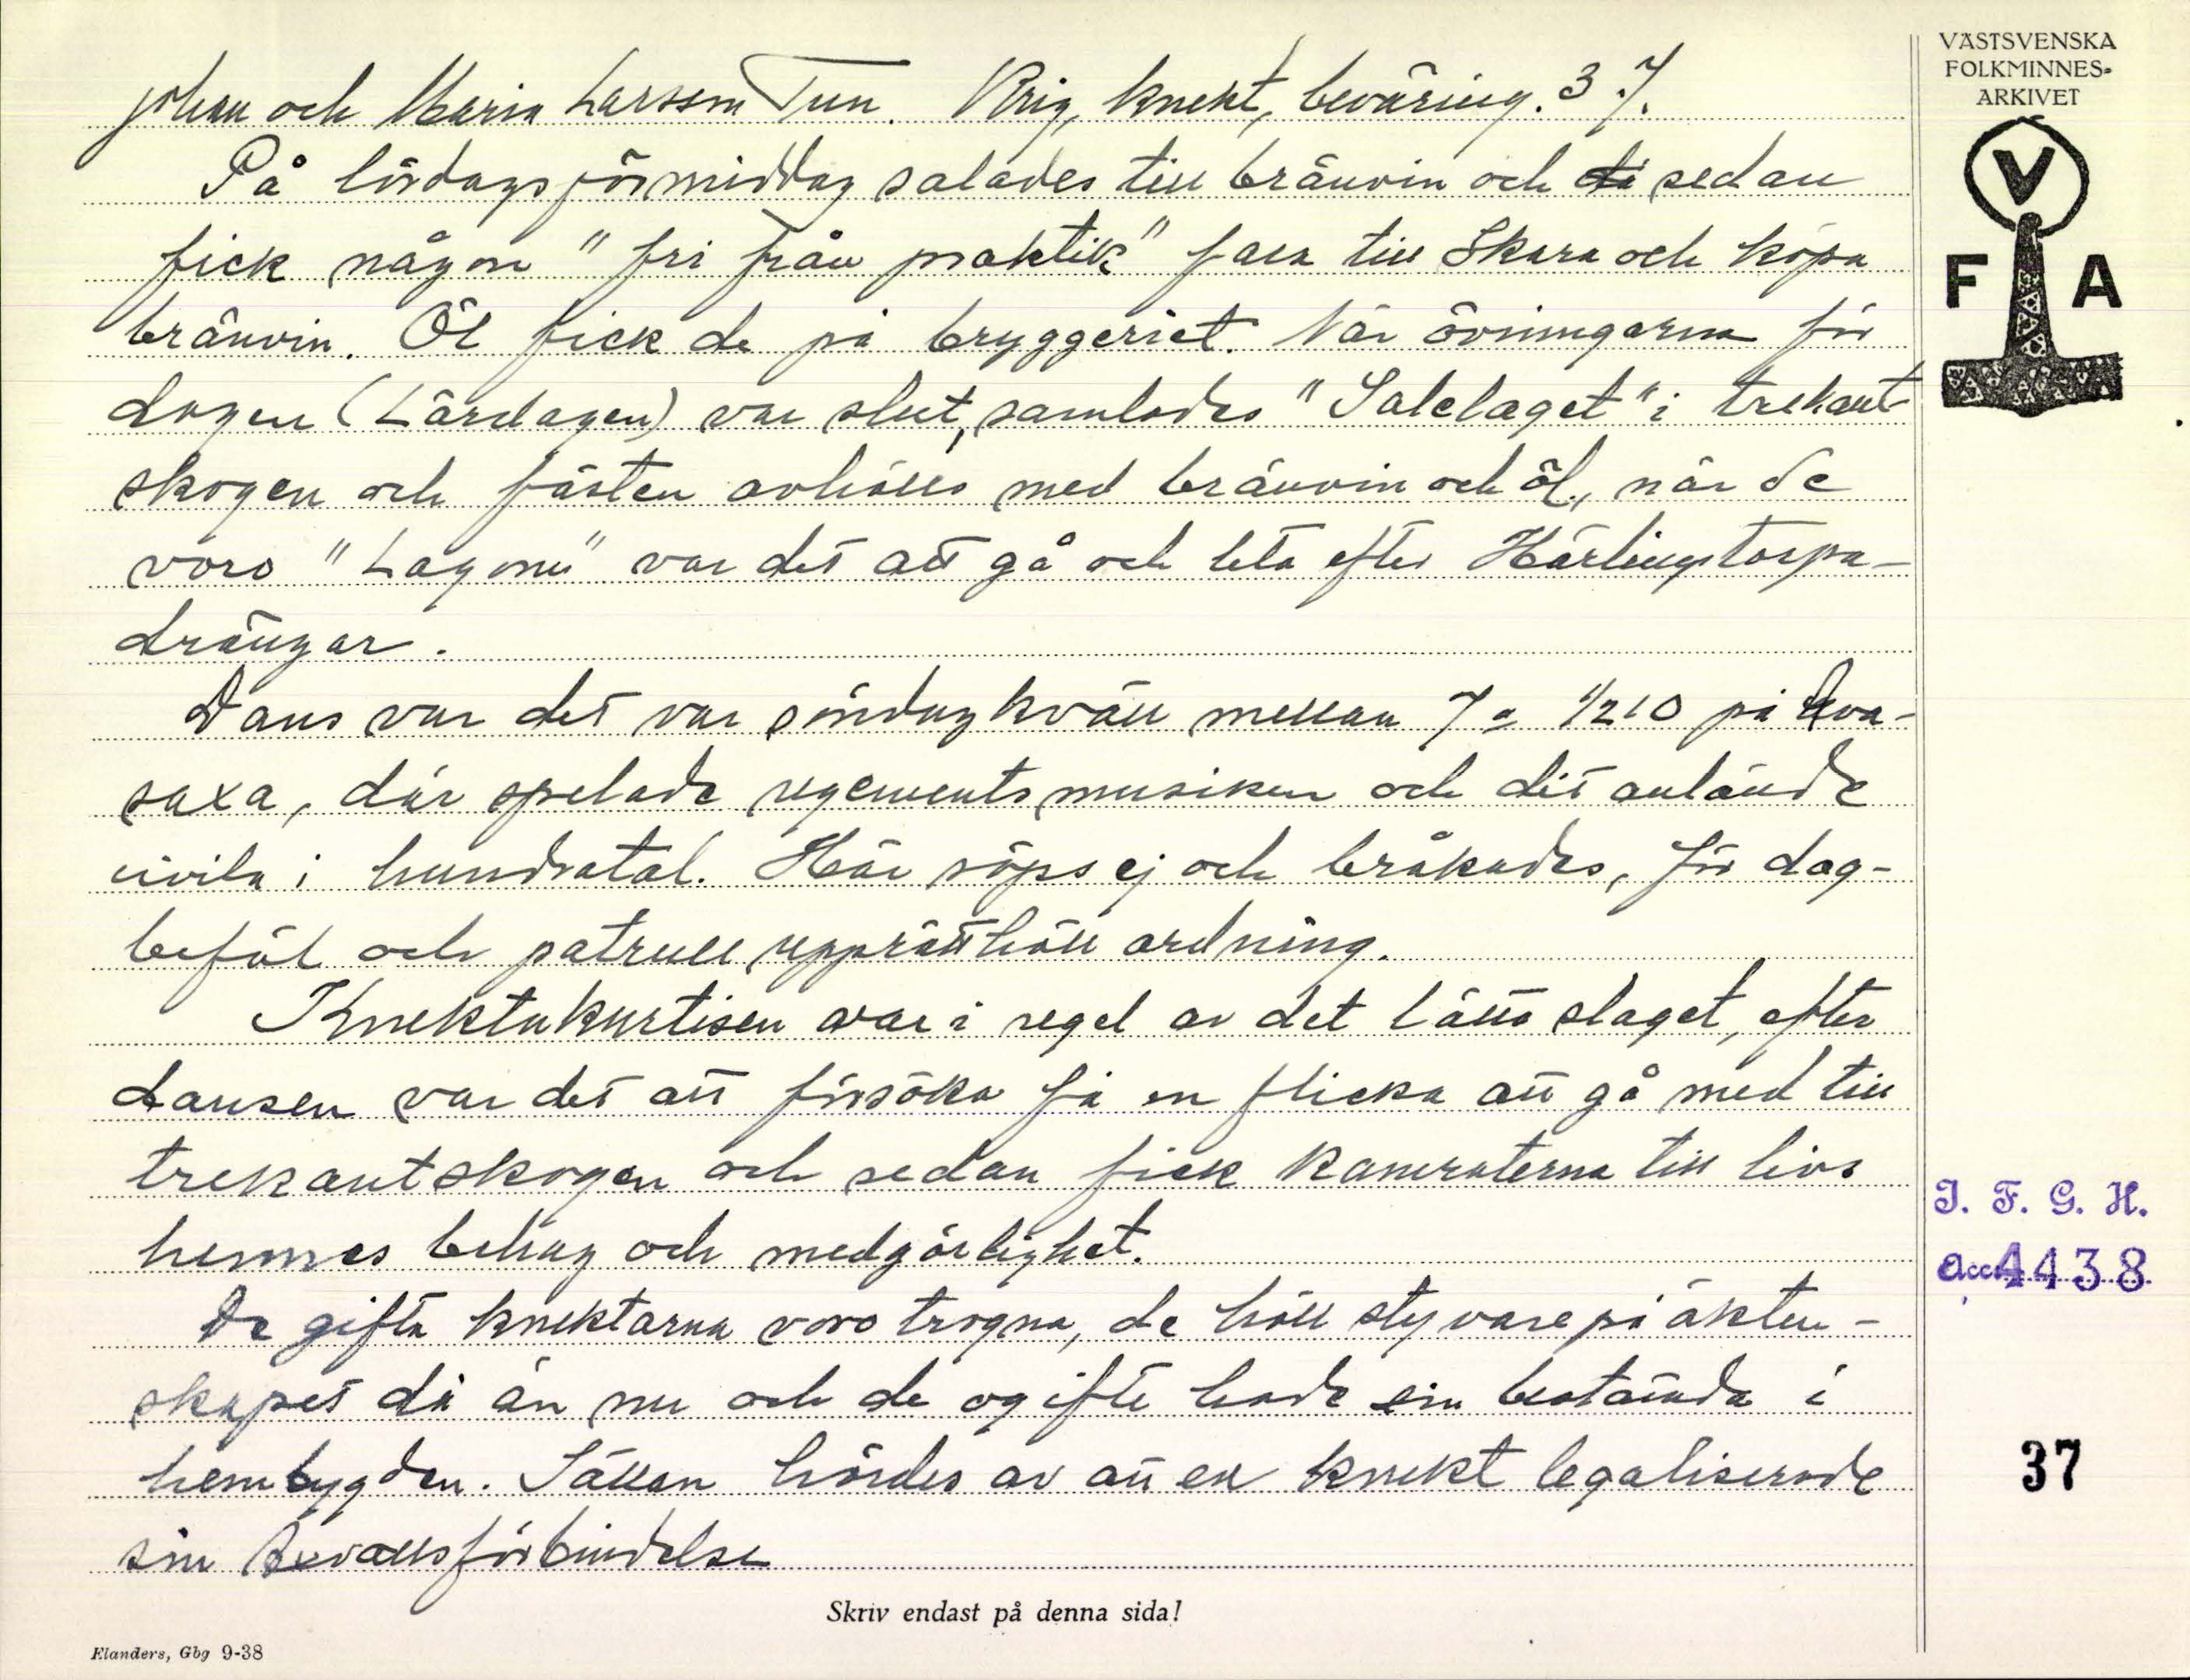 Johan och Maria Larsson Tun. Krig, knekt, beväring. 3 7.
På lördagsförmiddag salades till bränvin och sedan
fick någon "fri från praktik" fara till Skara och köpa
bränvin. Öl fick de på bryggeriet. När övningarna för
dagen (Lärdagen) var slut, samlades "Salelaget" i trekant
skogen och fästen avhölls med bränvin och öl, när de
voro "Lagom" var det att gå och leta efter Härlingstorpa-
drängar.
Dans var det var söndag kväll mellan 7 a 1/210 på Ava-
saxa, där spelade regementsmusiken och dit anlände
civila i hundratal. Här söps ej och bråkades, för dag-
befäl och patrull upprätthöll ordning.
Knektakurtisen var i regel av det lätta slaget, efter
dansen var det att försöka få en flicka att gå med till
trekantskogen och sedan fick kamraterna till livs
hennes behag och medgörlighet.
De gifta knektarna voro trogna, de höll styvare på äkten-
skapet då än nu och de ogifte hade sin bestämda i
hembygden. Sällan hördes av att en knekt legaliserade
sin Axvallsförbindelse
Skriv endast på denna sida!
Elanders, Gbg 9-38
VÄSTSVENSKA
FOLKMINNES-
ARKIVET
V
F A
I. F. G. H.
Acc 4438
37